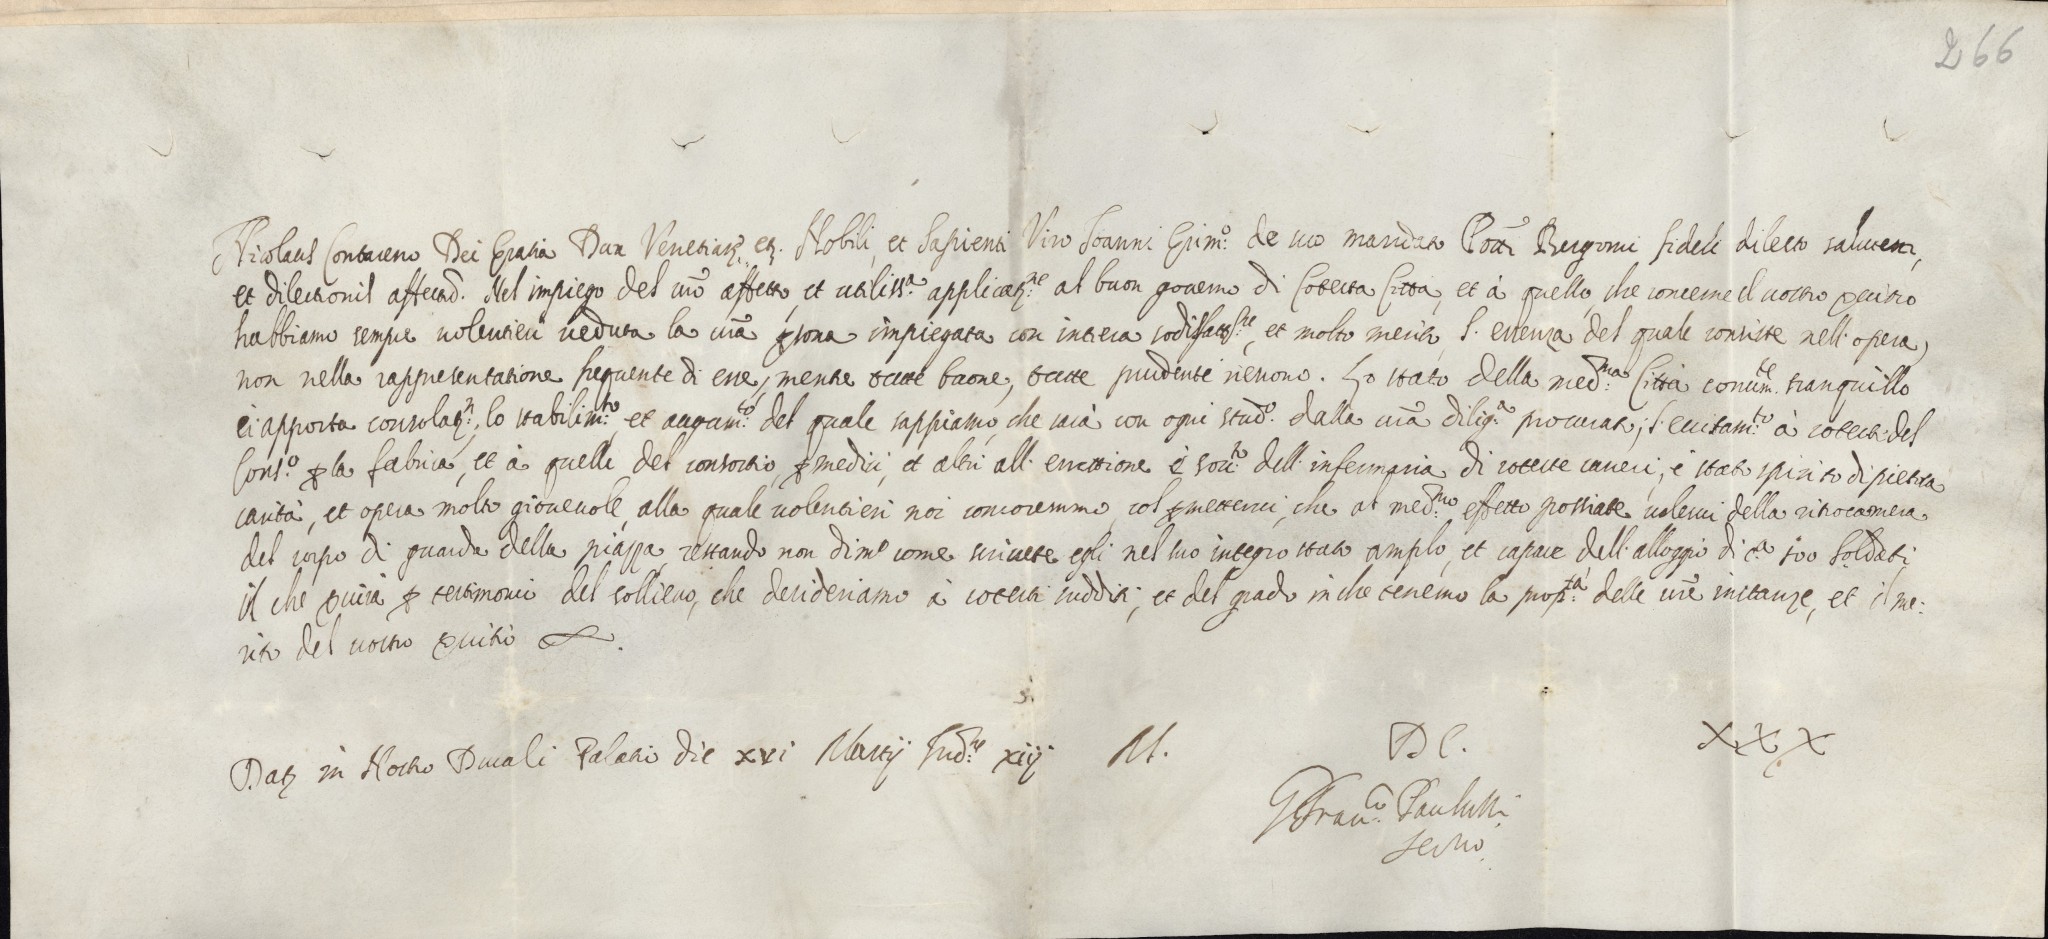 266
Nicolaus Contareno Dei Gratia Dux Venetiarz. etz. Nobili, et Sapienti Viro Joanni Grim.o de suo mandato Pottri Bergomi fideli dilecto salutem,
et dilectionis affectũ. Nel impiego del vr̃o affetto, et utiliss.a applicatz.ne al buon governo di Cotesta Città, et à quello, che concerne il nostro servitio
habbiamo sempre volentieri veduta la vr̃a persona impiegata con intiera sodisfatt.ne, et molto merito, l'essenza del quale consiste nell'opera,
non nella rappresentatione frequente di esse, mentre buone, prudente. Lo stato della med.ma Città tranquillo
ci apporta consolaz.n, lo stabilim.to, et augum.to del quale sappiamo, che sarà con ogni stud.o dalla vr̃a dilig.a procurato; l'eccitam.to à cotesti del
Cons.o p la fabrica, et à quelli del consortio, p medici, et altri all' errettione è dell' infermaria di coteste carceri, è stato spirito di pietosa
carità, et opera molto giovevole, alla quale volentieri noi concorremmo, col permettervi, che al med.mo effetto possiate valervi della retrocamera
del corpo di guarda della piazza, restando non dim.o come scrivete egli nel suo integro stato amplo, et capace dell' alloggio di c.a 100 soldati
il che servirà p testimonio del sollievo, che desideriamo à cotesti sudditi, et del grado in che tenemo la delle vr̃e instanze, et il me:
rito del vostro servitio.
Datz in Nostro Ducali Palatio die xvi Martij Ind.ne xiij M. DC. XXX
G Franc.o Paulutti
Secr̃io